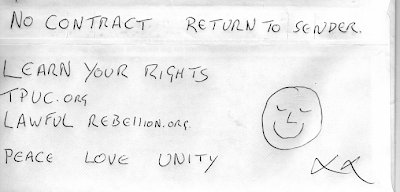 NO CONTRACT RETURN TO SENDER.
LEARN YOUR RIGHTS
TPUC.ORG
LAWFUL REBEllION.ORG.
PEACE LOVE UNITY